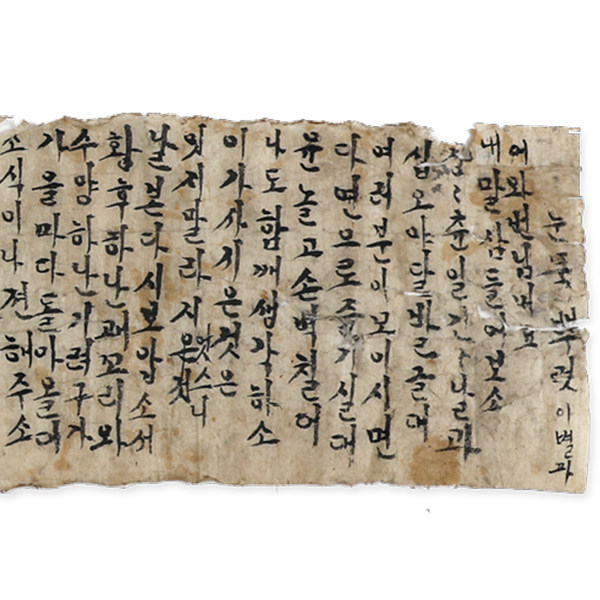 눈물 뿌렷 이별
어와 벗님네요
내말삼들어보소
춘일긴 날과
십오야달발근대
여러분이모이시면
다면으로즐기실대
윤놀고손벽칠어
나도함께생각하소
이가사지은것은
잇지말라지은것
날본다시보압소서
황후하난꾀꼬리와
수양하난기려구가
가을마다돌아올대
소식이나견해주소